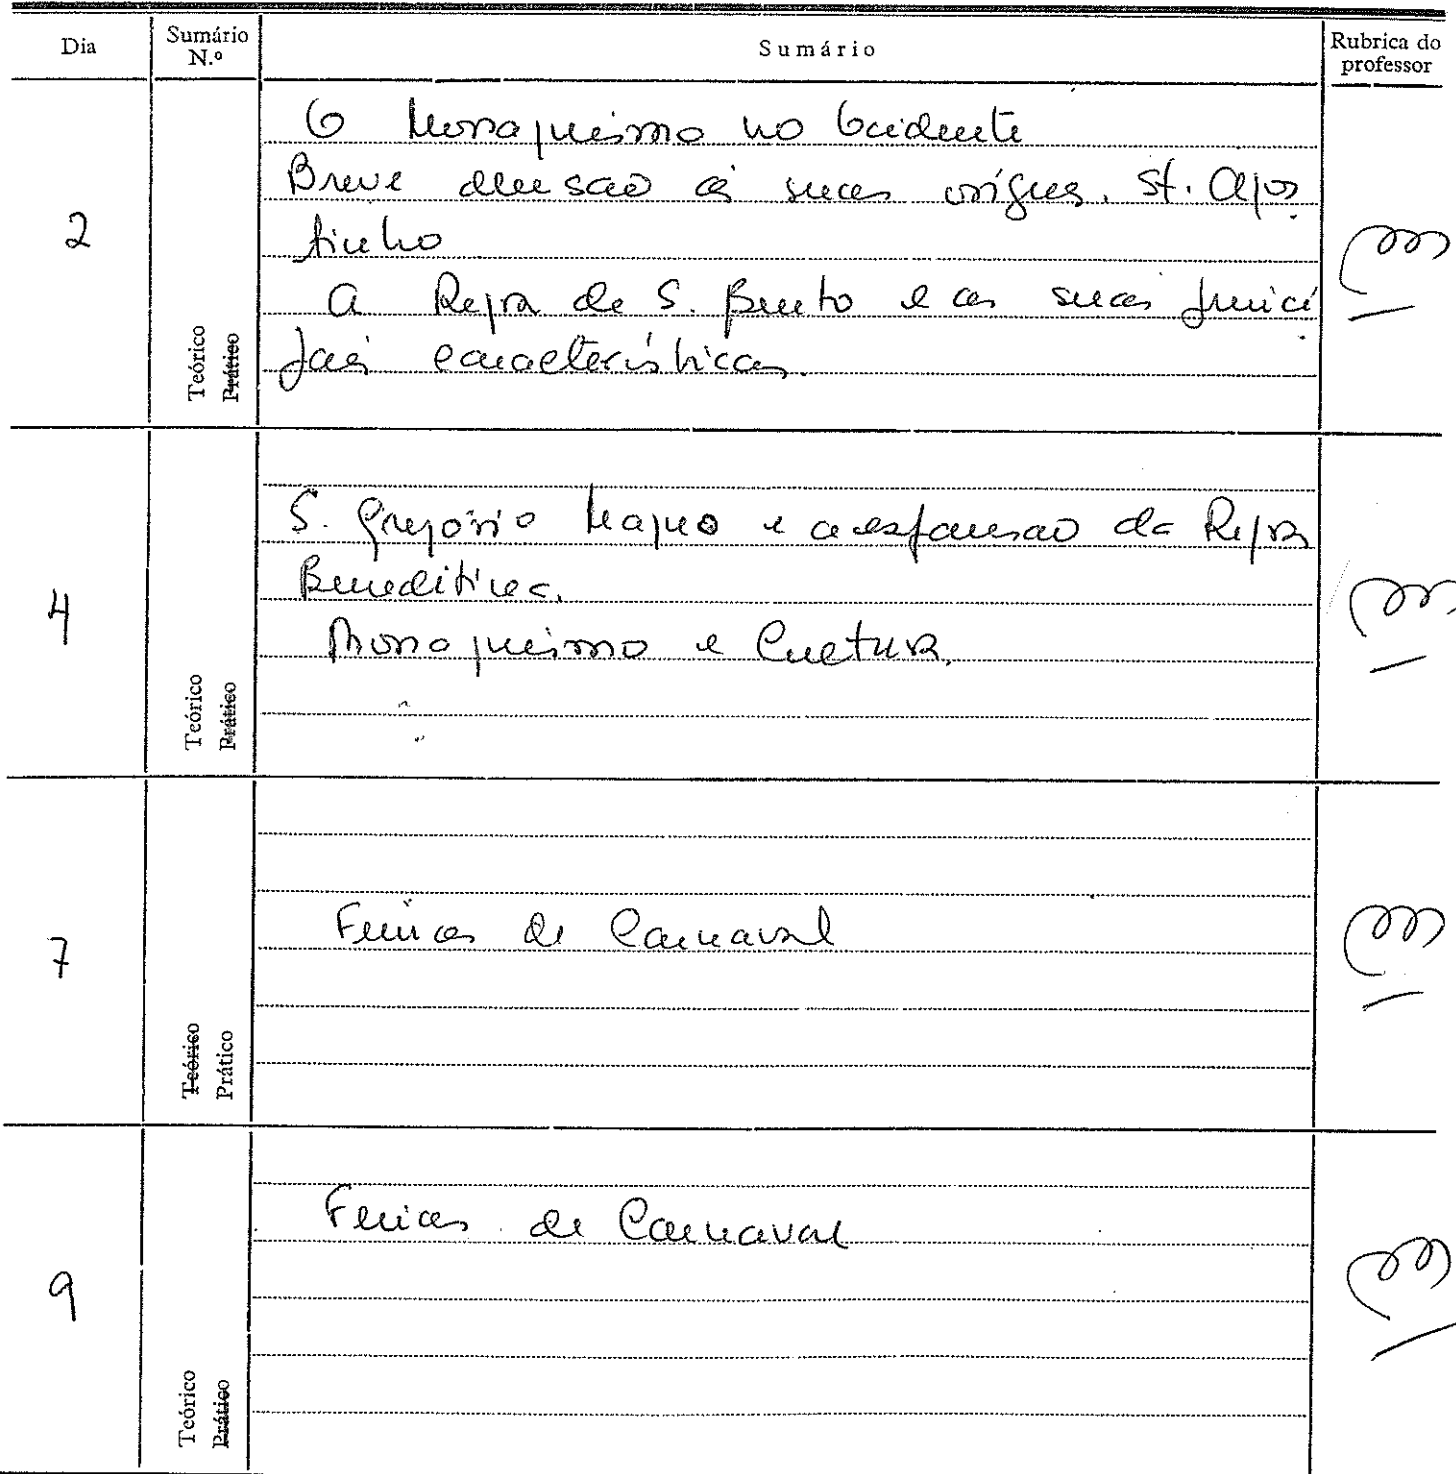 Dia
Sumário
N.º
Sumário
Rubrica do
professor
2
Teórico
Prático
O Monaquismo no Ocidente
Breve alusão às suas origens. St. Agos
tinho
A Regra de S. Bento e as suas princi
pais características.
4
Teórico
Prático
S. Gregório Magno e a expansão da Regra
Beneditina.
Monaquismo e Cultura.
7
Teórico
Prático
Férias de Carnaval
9
Teórico
Prático
Férias de Carnaval